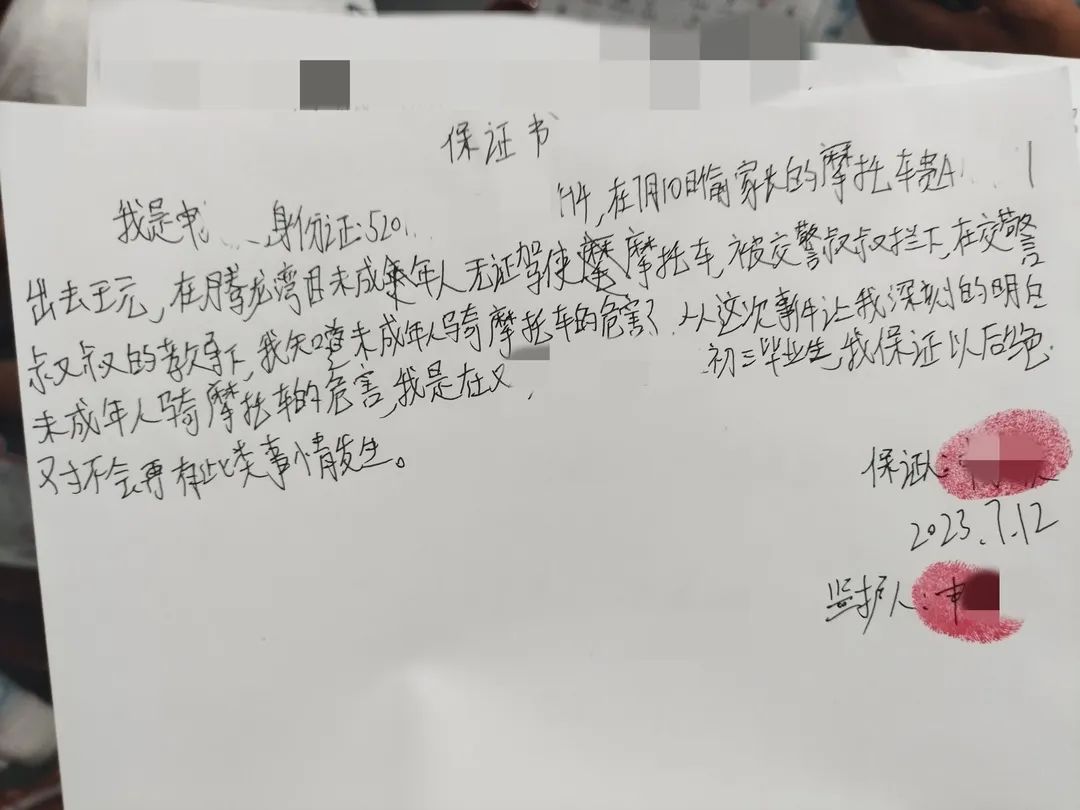 保证书
我是申 身份证:520 在7月10日偷家长的摩托车贵A
出去玩,在腾龙湾因未成年人无证驾使摩托车,被交警叔叔拦下,在交警
叔叔的教导下,我知道未成年人骑摩托车的危害了.从这次事件让我深刻的明白
未成年人骑摩托车的危害,我是在义 初三毕业生,我保证以后绝
对不会再有此类事情发生。
保证人:
2023.7.12
监护人:申